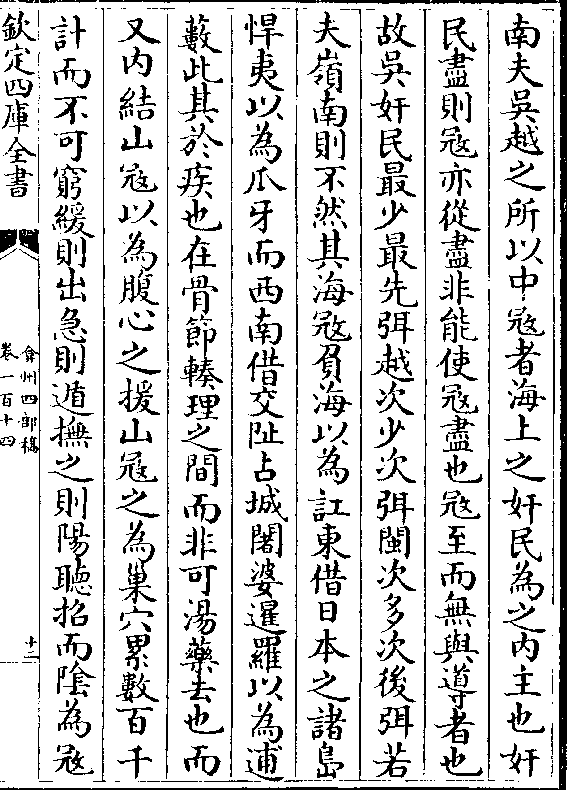 南夫吳越之所以中寇者海上之奸民為之内主也奸
民盡則寇亦從盡非能使寇盡也寇至而無與導者也
故吳奸民最少最先弭越次少次弭閩次多次後弭若
夫嶺南則不然其海寇負海以為訌東借日本之諸島
悍夷以為爪牙而西南借交阯占城闍婆暹羅以為逋
藪此其於疾也在骨節輳理之間而非可湯藥去也而
又内結山寇以為腹心之援山寇之為巢穴累數百千
計而不可窮緩則出急則遁撫之則陽聽招而陰為寇
欽定四庫全書
弇州四部稿
卷一百十四
十二